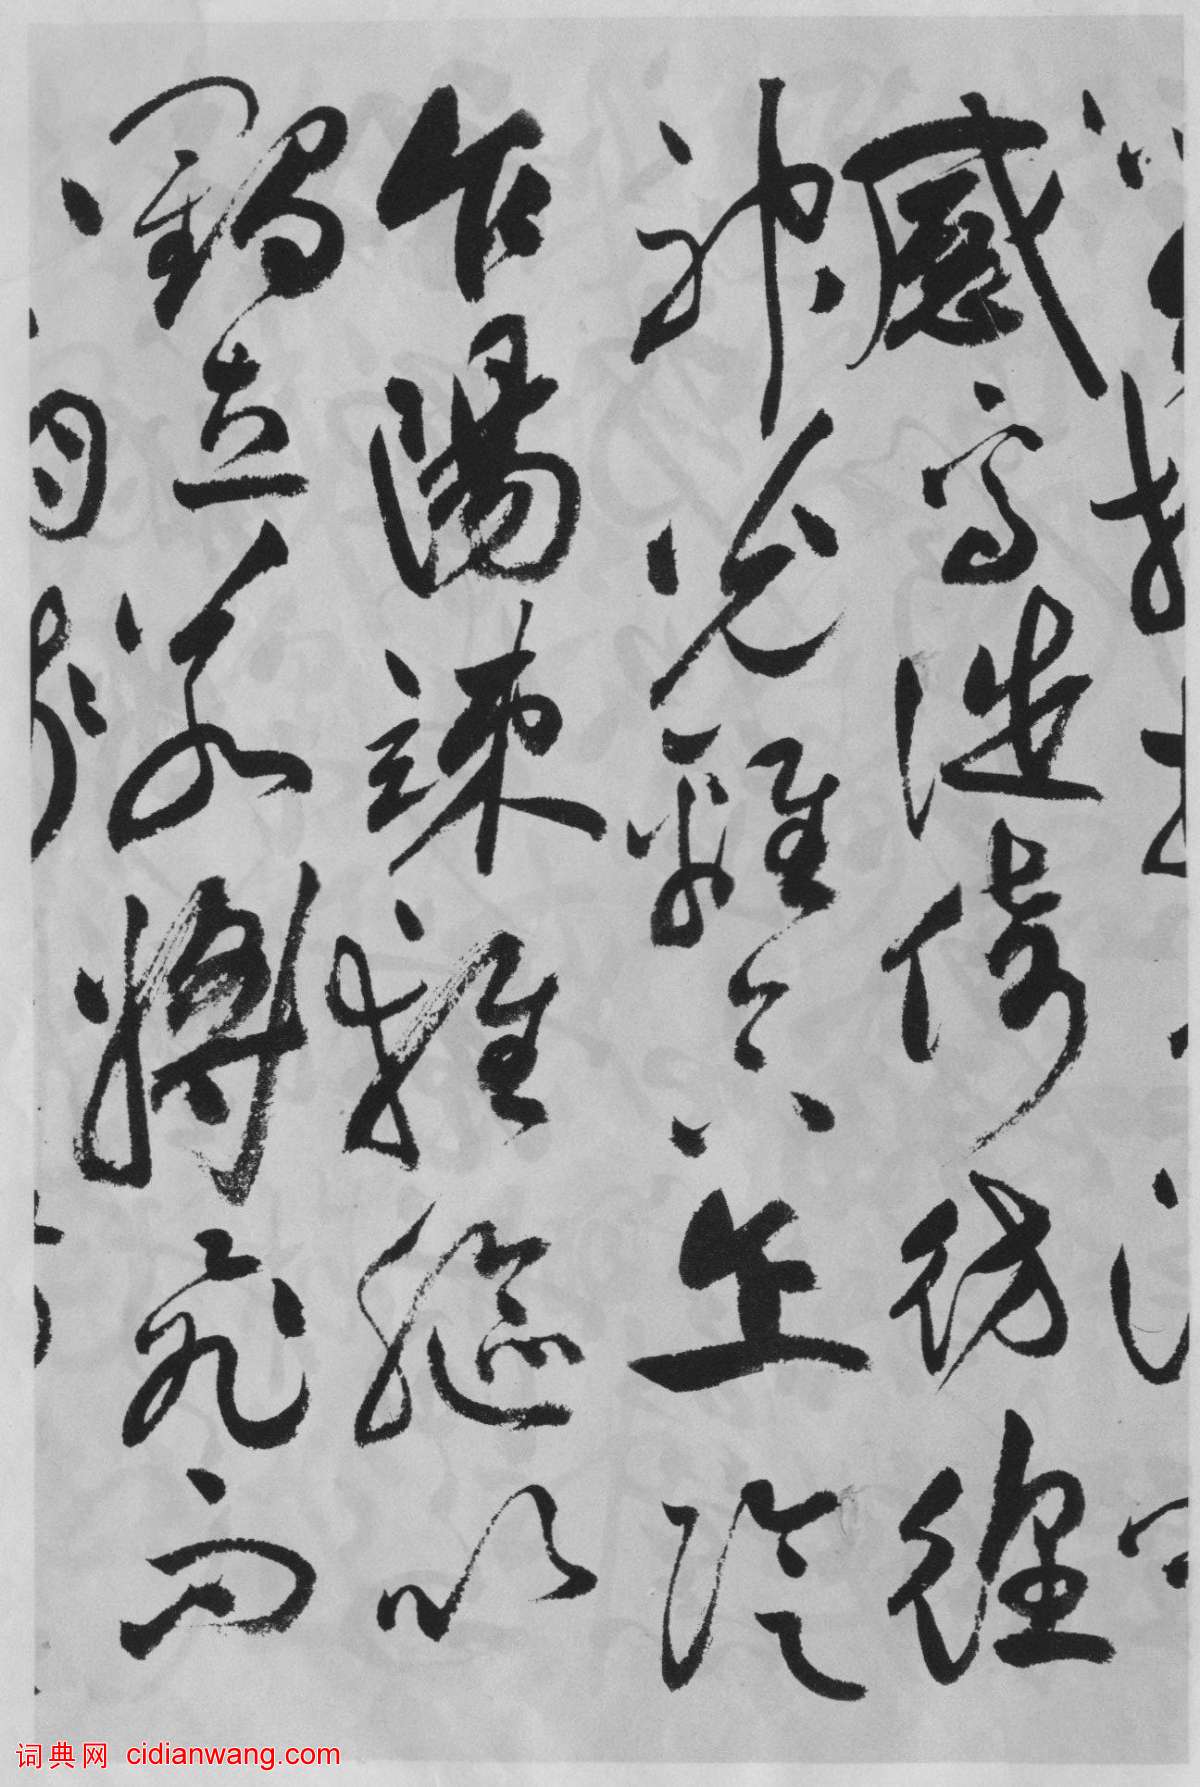 感焉徙倚彷徨
神光離合乍陰
乍陽竦輕軀以
鶴立若將飛而
词典网 cidianwang.com